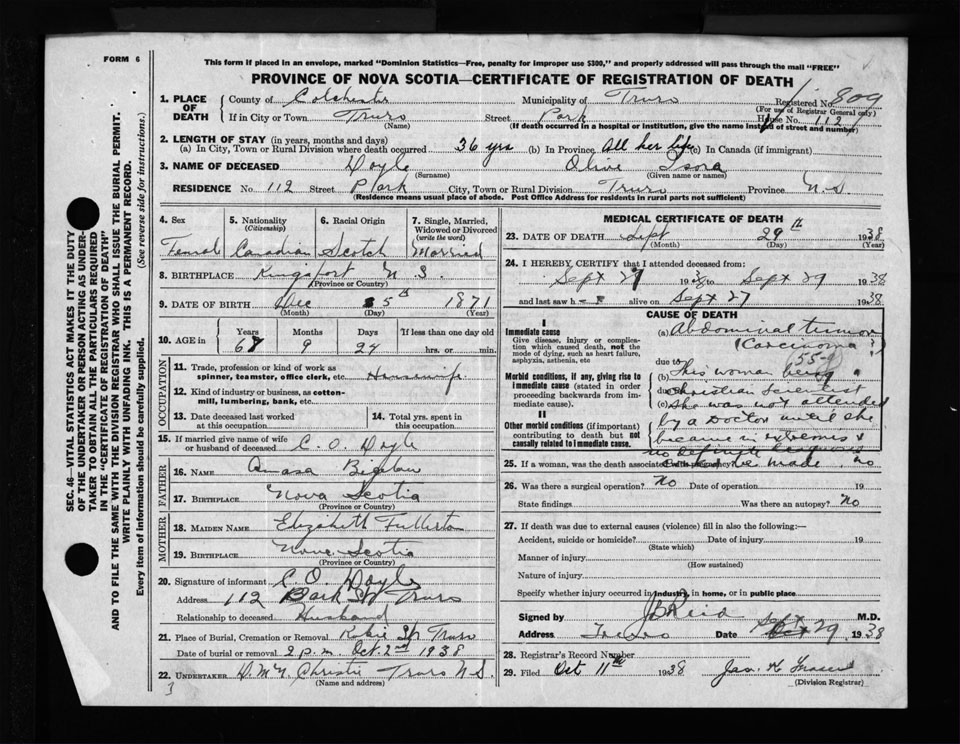 FORM 6
This form if placed in an envelope, marked "Dominion Statistics—Free, penalty for improper use $300," and properly addressed will pass through the mail "FREE"
PROVINCE OF NOVA SCOTIA—CERTIFICATE OF REGISTRATION OF DEATH
SEC. 46—VITAL STATISTICS ACT MAKES IT THE DUTY
OF THE UNDERTAKER OR PERSON ACTING AS UNDER-
TAKER TO OBTAIN ALL THE PARTICULARS REQUIRED
IN THE "CERTIFICATE OF REGISTRATION OF DEATH"
AND TO FILE THE SAME WITH THE DIVISION REGISTRAR WHO SHALL ISSUE THE BURIAL PERMIT.
WRITE PLAINLY WITH UNFADING INK. THIS IS A PERMANENT RECORD.
Every item of information should be carefully supplied. (See reverse side for instructions.)
1. PLACE OF DEATH County of Colchester Municipality of Truro Registered No. 809
(For use of Registrar General only)
If in City or Town Truro Street Park House No. 112
(Name) (If death occurred in a hospital or institution, give the name instead of street and number)
2. LENGTH OF STAY (in years, months and days)
(a) In City, Town or Rural Division where death occurred 36 yrs (b) In Province All her life (c) In Canada (if immigrant)
3. NAME OF DECEASED Doyle Olive
(Surname) (Given name or names)
RESIDENCE No. 112 Street Park City, Town or Rural Division Truro Province N.S
(Residence means usual place of abode. Post Office Address for residents in rural parts not sufficient)
4. Sex Female
5. Nationality (Citizenship) Canadian
6. Racial Origin Scotch
7. Single, Married, Widowed or Divorced (write the word) Married
8. BIRTHPLACE Kingsport N S.
(Province or Country)
9. DATE OF BIRTH Dec 5th 1871
(Month) (Day) (Year)
10. AGE in Years Months Days If less than one day old
9 24 hrs. or min.
OCCUPATION
11. Trade, profession or kind of work as spinner, teamster, office clerk, etc. Housewife
12. Kind of industry or business, as cotton-mill, lumbering, bank, etc.
13. Date deceased last worked at this occupation
14. Total yrs. spent in this occupation
15. If married give name of wife or husband of deceased C. O. Doyle
FATHER
16. NAME Amasa Bigelow
17. BIRTHPLACE Nova Scotia
(Province or Country)
MOTHER
18. MAIDEN NAME Elizabeth Fullerton
19. BIRTHPLACE Nova Scotia
(Province or Country)
20. Signature of informant C. O. Doyle
Address 112 Park St Truro
Relationship to deceased Husband
21. Place of Burial, Cremation or Removal Robie St Truro
Date of burial or removal 2 p.m. Oct. 2nd 1938
22. UNDERTAKER Christie Truro N.S.
(Name and address)
3
MEDICAL CERTIFICATE OF DEATH
23. DATE OF DEATH Sept 29th 1938
(Month) (Day) (Year)
24. I HEREBY CERTIFY that I attended deceased from:
Sept 27 1938 to Sept 29 1938
and last saw h alive on Sept 27 1938
CAUSE OF DEATH
I
Immediate cause
Give disease, injury or complication which caused death, not the mode of dying, such as heart failure, asphyxia, asthenia, etc
(a) Abdominal tumor
(Carcinoma ?
due to 55-
Morbid conditions, if any, giving rise to immediate cause (stated in order proceeding backwards from immediate cause).
(b) This woman being a
due to Christian Scientist
(c) She was not attended
II
Other morbid conditions (if important) contributing to death but not causally related to immediate cause.
by a Doctor until she
became in extremes &
no definite diagnosis
could be made.
25. If a woman, was the death associated with pregnancy? no
26. Was there a surgical operation? No Date of operation 19
State findings Was there an autopsy? No
27. If death was due to external causes (violence) fill in also the following:—
Accident, suicide or homicide? Date of injury 19
(State which)
Manner of injury
(How sustained)
Nature of injury
Specify whether injury occurred in industry, in home, or in public place
Signed by Reid M.D.
Address Truro Date Sept 29 1938
28. Registrar's Record Number
29. Filed Oct 11th 1938 Jas. H Fraser
(Division Registrar)